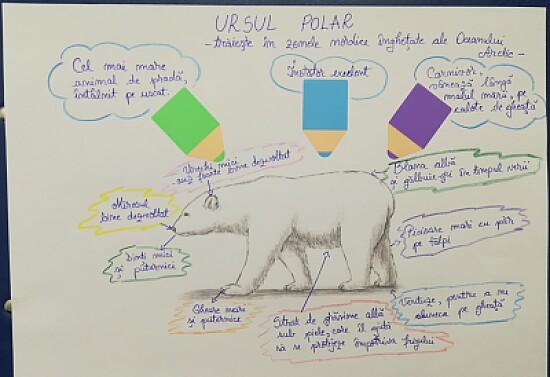 URSUL POLAR
- trăiește în zonele nordice înghețate ale Oceanului
Arctic -
Cel mai mare
animal de pradă,
întâlnit pe uscat.
Înotător excelent
Carnivor,
vânează lângă
malul mării, pe
calote de gheață
Urechi mici
- auz foarte bine dezvoltat
Blana albă
și gălbuie în timpul verii
Mirosul
bine dezvoltat
Picioare mari cu păr
pe tălpi
Dinți mici
și puternici
Gheare mari
și puternice
Strat de grăsime albă
sub piele, care îl ajută
să se protejeze împotriva frigului
Ventuze, pentru a nu
aluneca pe gheață